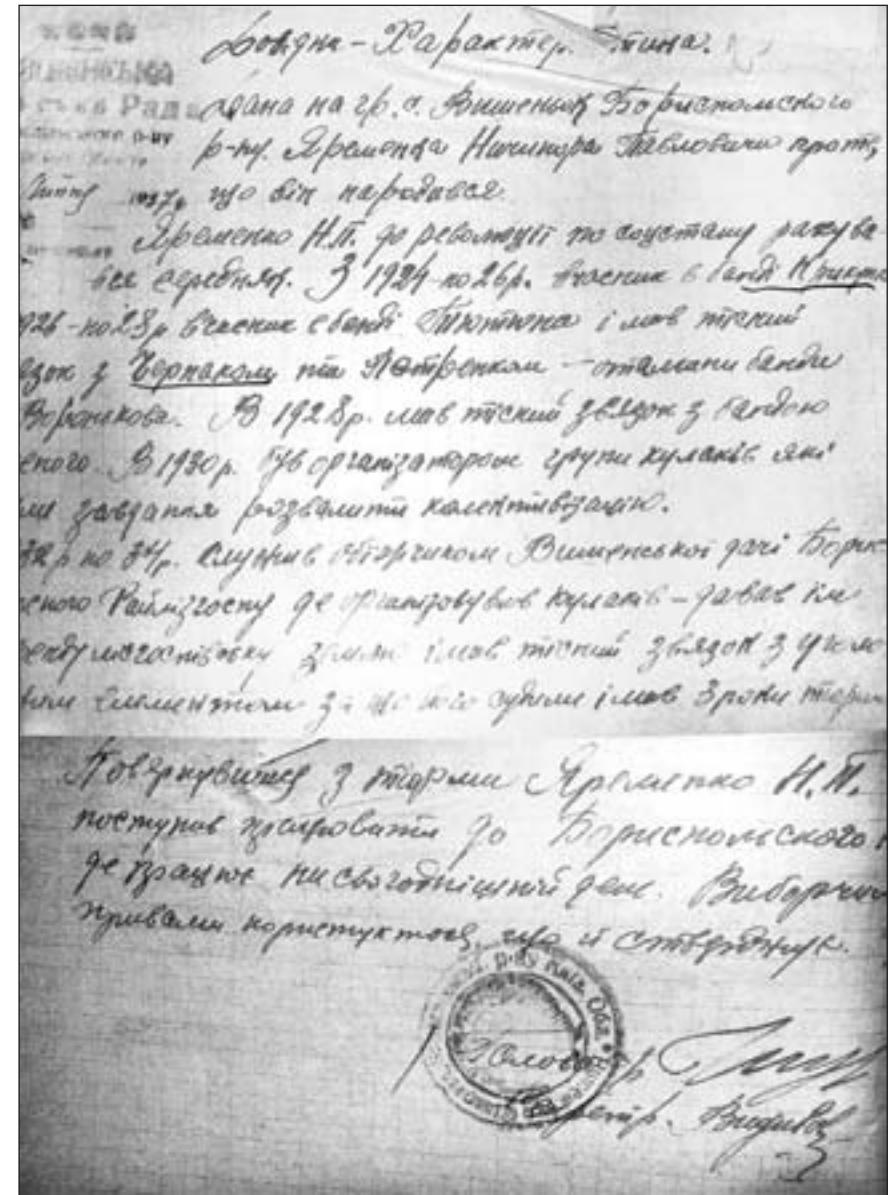 Довідка-Характеристика.
Рада
дана на гр. с. Вишеньок Бориспольского
р-ну
р-ну. Яременка Ничипора Павловича проте,
1937р. що він народився
Яременко Н.П. до революції по соцстану рахува
вся середняк. З 1924-по 26р. вчасник в банді
926-по 28р вчасник в банді Тютюна і мав тісний
язок з Черпаком та Петренком - отамани банди
Воронькова. В 1928р. мав тісний звязок з бандою
В 1930р. був организатором групи кулаків які
завдання розвалити колективізацію.
32р по 34р. служив обїзчиком Вишенської дачі Борис
ского Райлізгоспу де організовував кулаків - давав їм
землю і мав тісний звязок з
елементом за що його судили і мав 3 роки тюрми
Повернувшись з тюрми Яременко Н.П.
поступив працювати до Бориспольского
де працює на сьогоднішній день. Виборчими
правами користується, що й стверджує.
р-ну Київ. Обл
Голова с/р
Секретр.